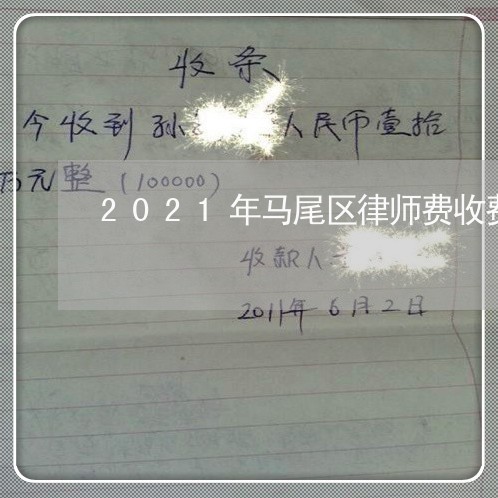 收条
今收到孙人民币壹拾
万元整(100000)
2021年马尾区律师费收费
收款人
2011年6月2日